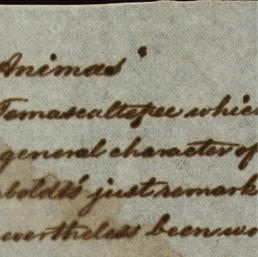 Animas"
Temascaltepec which
general character of
boldt's just remark
evertheless been wo